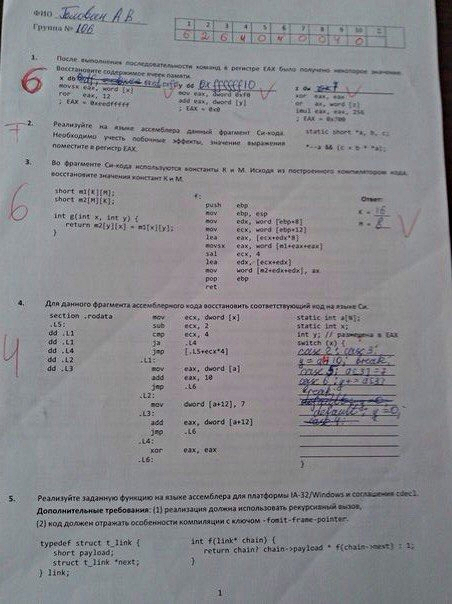 ФИО Головеин А В
Группа № 106
1 2 3 4 5 6 7 8 9 10
6 2 6 4 0 4 0 0 4 0
1.
После выполнения последовательности команд в регистре EAX было получено некоторое значение.
Восстановите содержимое ячеек памяти.
x db
y dd 0xffffff10
z dw
movsx eax, word [x]
mov eax, dword 0xf0
xor eax, eax
ror eax, 12
add eax, dword [y]
or ax, word [z]
; EAX = 0xeedfffff
; EAX = 0x0
imul eax, eax, 256
; EAX = 0x700
6
2.
Реализуйте на языке ассемблера данный фрагмент Си-кода.
Необходимо учесть побочные эффекты, значение выражения
поместите в регистр EAX.
static short *a, b, c;
*--a && (c × b + *a);
3.
Во фрагменте Си-кода используются константы K и M. Исходя из построенного компилятором кода,
восстановите значения констант K и M.
6
short m1[K][M];
short m2[M][K];
int g(int x, int y) {
return m2[y][x] = m1[x][y];
}
f:
push ebp
mov ebp, esp
mov edx, dword [ebp+8]
mov ecx, dword [ebp+12]
lea eax, [ecx+edx*8]
movsx eax, word [m1+eax+eax]
sal ecx, 4
lea edx, [ecx+edx]
mov word [m2+edx+edx], ax
pop ebp
ret
Ответ:
K = 16
M = 8
4.
Для данного фрагмента ассемблерного кода восстановить соответствующий код на языке Си.
4
section .rodata
.L5:
dd .L1
dd .L1
dd .L4
dd .L2
dd .L3
mov ecx, dword [x]
sub ecx, 2
cmp ecx, 4
ja .L4
jmp [.L5+ecx*4]
.L1:
mov eax, dword [a]
add eax, 10
jmp .L6
.L2:
mov dword [a+12], 7
.L3:
add eax, dword [a+12]
jmp .L6
.L4:
xor eax, eax
.L6:
static int a[N];
static int x;
int y; // размещена в EAX
switch (x) {
case 2: case 3:
break;
case 5: a[3]=7
case 6: y+=a[3]
break;
default: y=0;
}
5.
Реализуйте заданную функцию на языке ассемблера для платформы IA-32/Windows и соглашения cdecl.
Дополнительные требования: (1) реализация должна использовать рекурсивный вызов,
(2) код должен отражать особенности компиляции с ключом -fomit-frame-pointer.
typedef struct t_link {
short payload;
struct t_link *next;
} link;
int f(link* chain) {
return chain? chain->payload * f(chain->next) : 1;
}
1